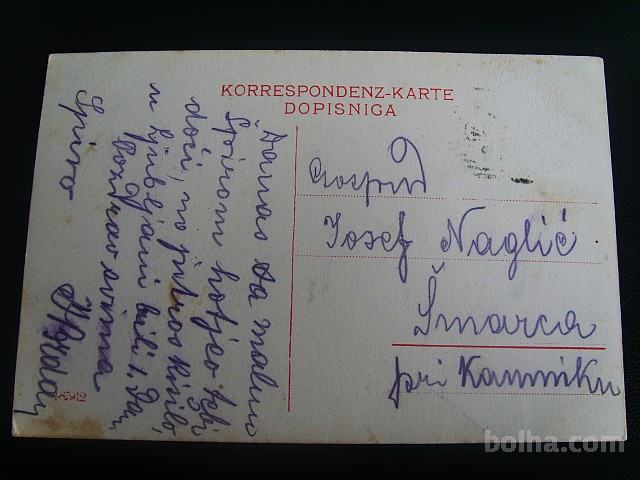 KORRESPONDENZ-KARTE
DOPISNIGA
Danas sa malim
Špirom hotjeo tebi
doći, no jutros kišilo
u Ljubljani bili 1 dan
Pozdrav svima
Spiro
Gospod
Josef Naglić
Šmarca
pri Kamniku
bolha.com